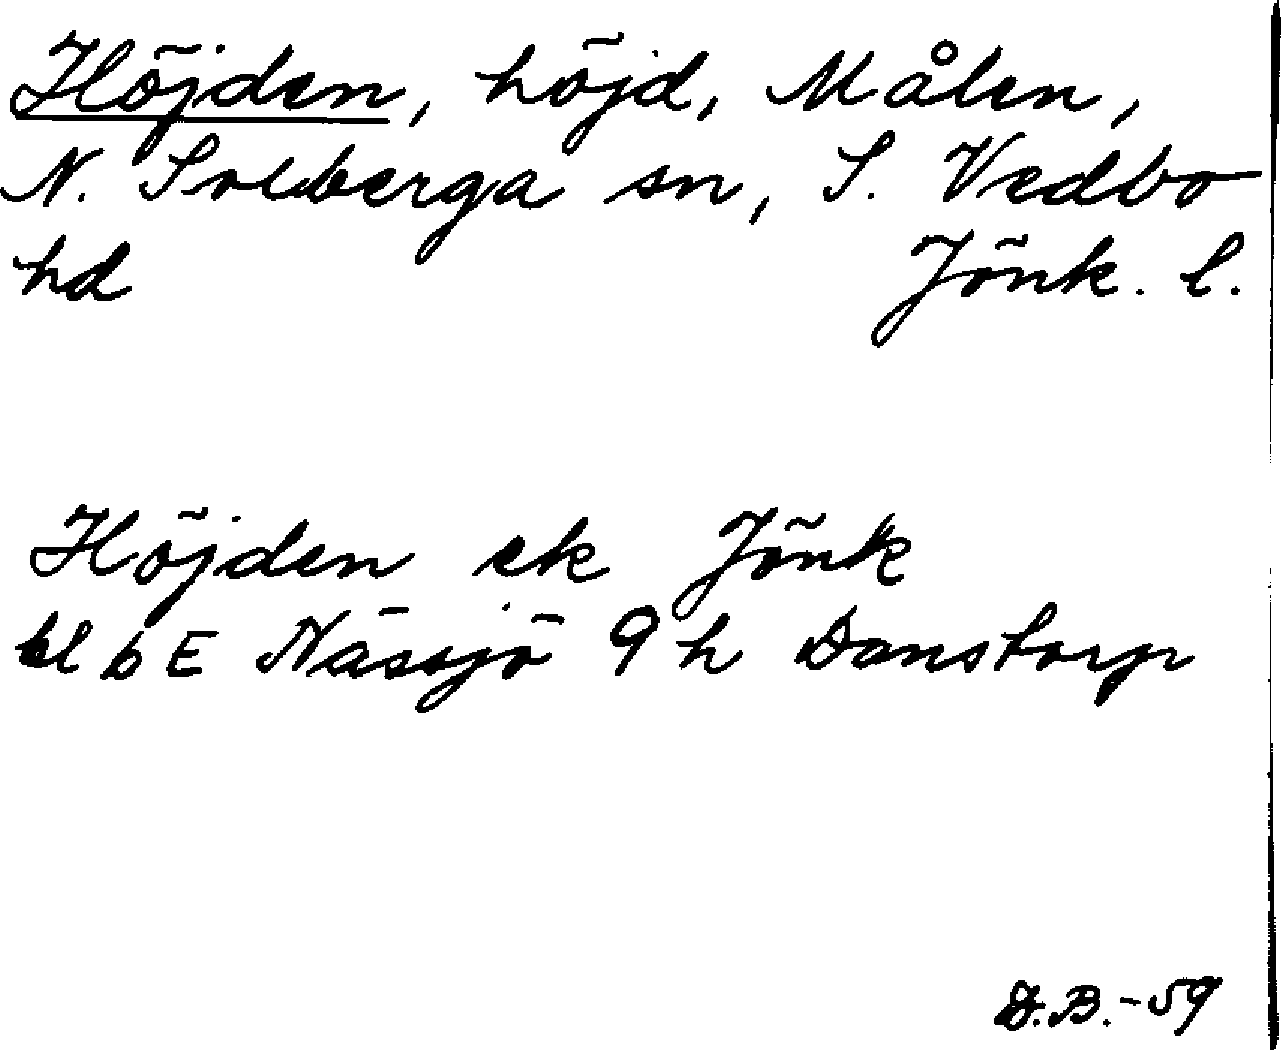 Höjden, höjd, Målen,
N. Solberga sn, S. Vedbo
hd Jönk. l.
Höjden ek Jönk
bl b E Nässjö 9 h Danstorp
D.B.-59